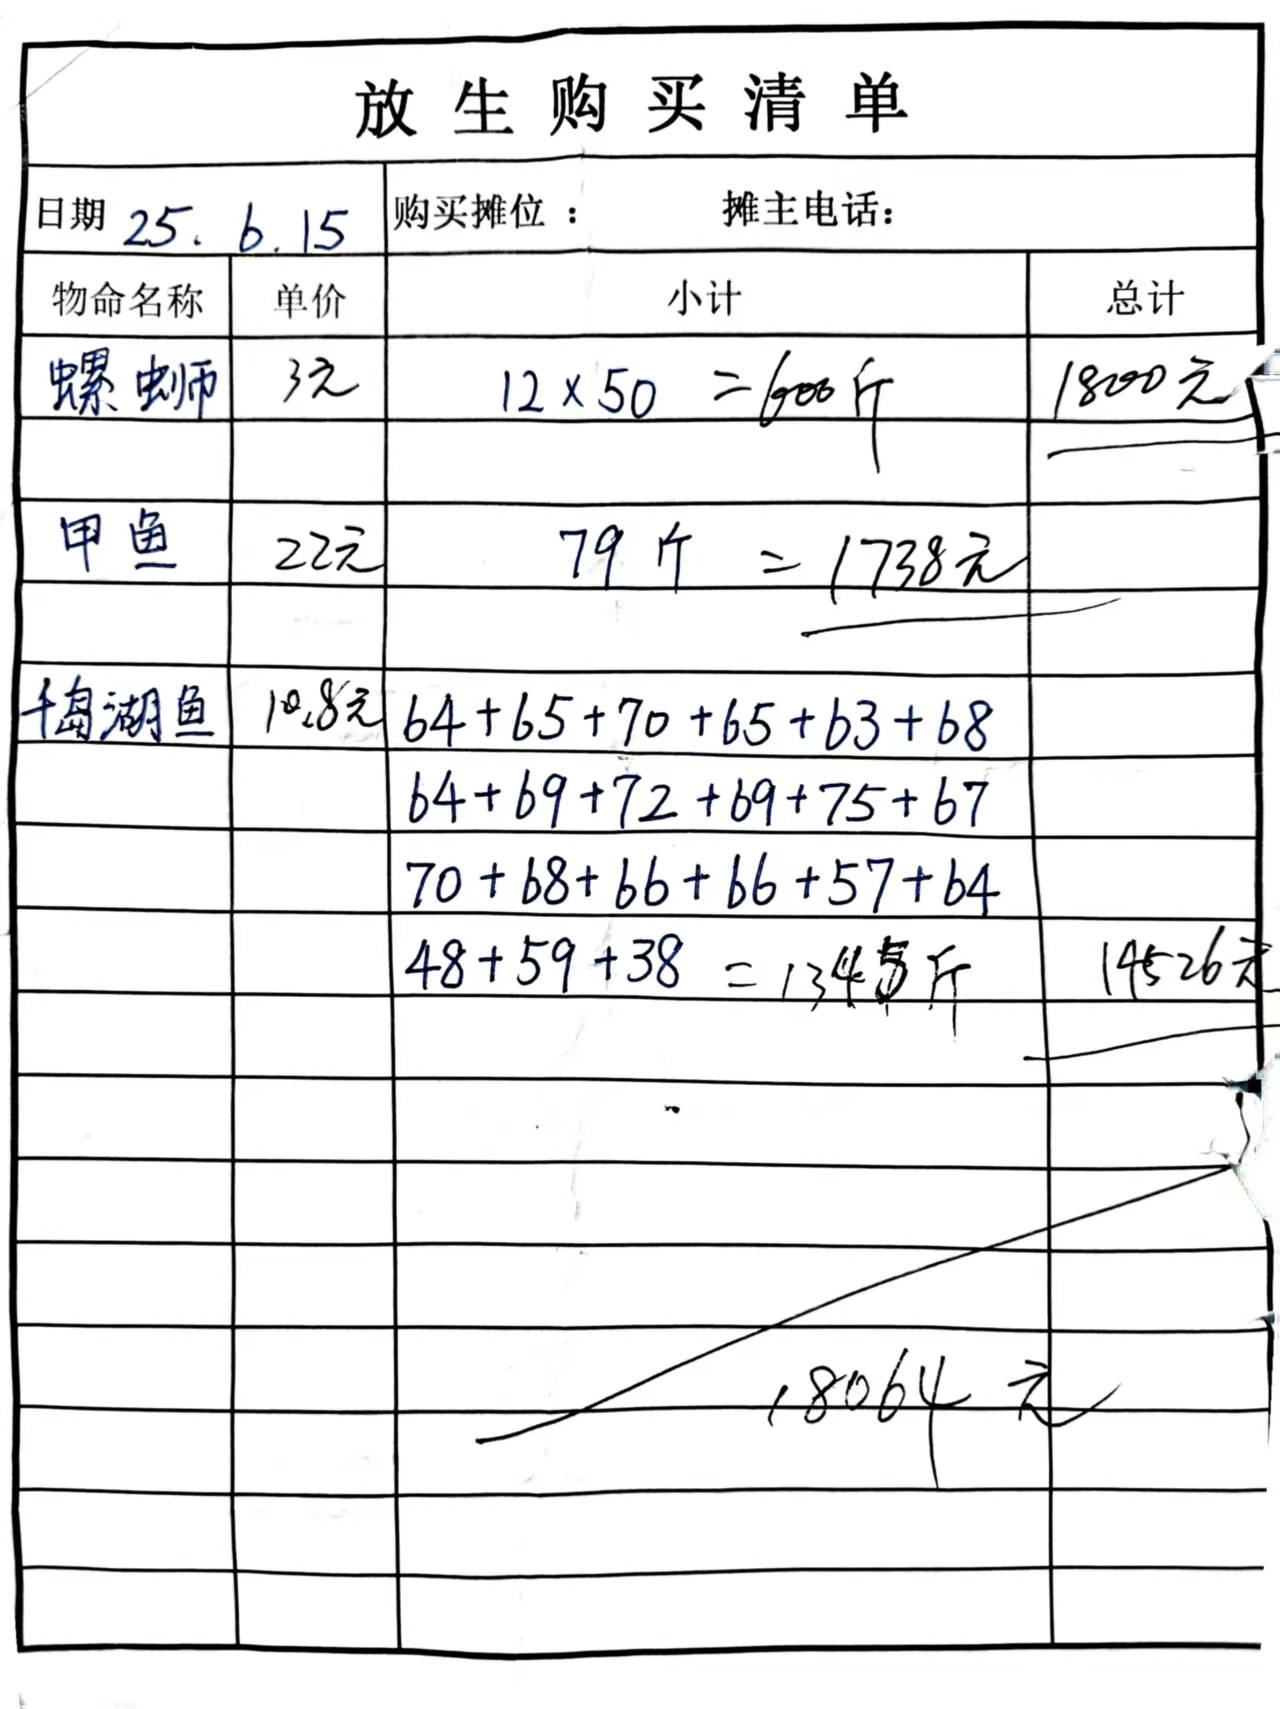 放生购买清单
日期 25.6.15 购买摊位： 摊主电话：
物命名称 单价 小计 总计
螺蛳 3元 12×50 =600斤 1800元
甲鱼 22元 79斤 =1738元
千岛湖鱼 10.8元 64+65+70+65+63+68
64+69+72+69+75+67
70+68+66+66+57+64
48+59+38 =1345斤 14526元
18064元